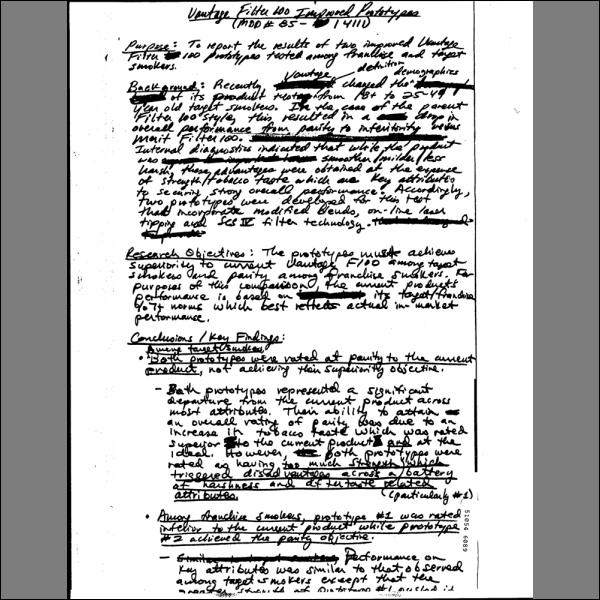 Vantage Filter 100 Improved Prototypes
(MDD # 85- 1411)
Purpose: To report the results of two improved Vantage
Filter 100 prototypes tested among franchise and target
smokers.
Vantage definition demographics
Background: Recently changed the
of its product from 18+ to 25-49
year old target smokers. In the case of the parent
Filter 100 style, this resulted in a drop in
overall performance from parity to inferiority versus
Merit Filter 100.
Internal diagnostics indicated that while the product
was smoother/milder/less
harsh, those advantages were obtained at the expense
of strength/tobacco taste which are key attributes
to securing strong overall performance. Accordingly,
two prototypes were developed for this test
that incorporate modified blends, on-line laser
tipping and SCS IV filter technology.
Research Objectives: The prototypes must achieve
superiority to current Vantage F100 among target
smokers and parity among franchise smokers. For
purposes of this comparison, the current product's
performance is based on its target/franchise
norms which best reflects actual in-market
performance.
Conclusions/Key Findings:
Among target smokers,
• Both prototypes were rated at parity to the current
product, not achieving their superiority objective.
- Both prototypes represented a significant
departure from the current product across
most attributes. Their ability to attain
an overall rating of parity was due to an
increase in tobacco taste which was rated
superior to the current product and at the
ideal. However, both prototypes were
rated as having too much strength which
triggered disadvantages across a battery
of harshness and aftertaste related
attributes. (particularly #1)
• Among franchise smokers, prototype #1 was rated
inferior to the current product while prototype
#2 achieved the parity objective.
- Performance on
key attributes was similar to that observed
among target smokers except that the
greater strength of prototype #1 resulted in
51054 6089